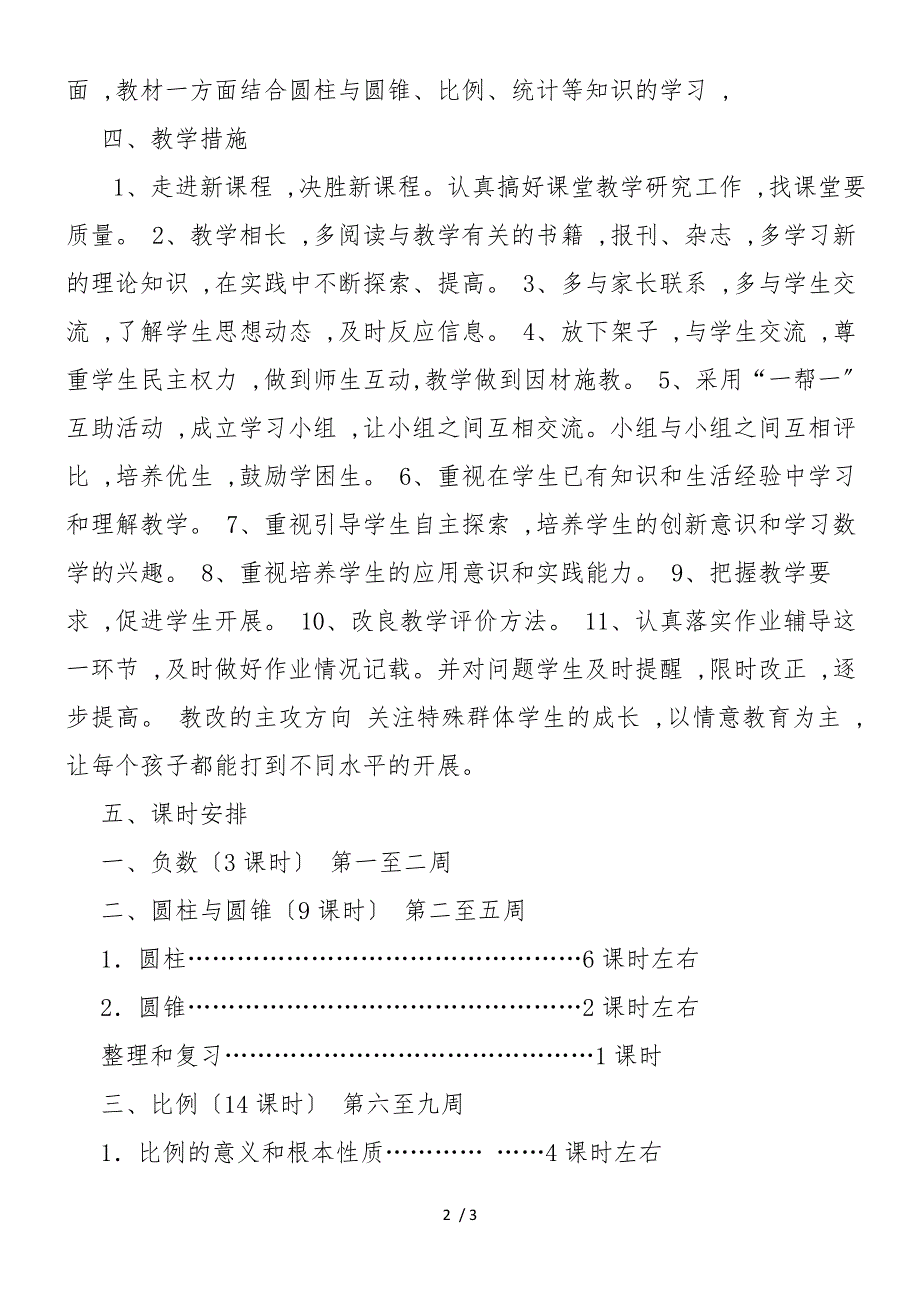 面 ,教材一方面结合圆柱与圆锥、比例、统计等知识的学习 ,
四、教学措施
1、走进新课程 ,决胜新课程。认真搞好课堂教学研究工作 ,找课堂要
质量。 2、教学相长 ,多阅读与教学有关的书籍 ,报刊、杂志 ,多学习新
的理论知识 ,在实践中不断探索、提高。 3、多与家长联系 ,多与学生交
流 ,了解学生思想动态 ,及时反应信息。 4、放下架子 ,与学生交流 ,尊
重学生民主权力 ,做到师生互动,教学做到因材施教。 5、采用“一帮一〞
互助活动 ,成立学习小组 ,让小组之间互相交流。小组与小组之间互相评
比 ,培养优生 ,鼓励学困生。 6、重视在学生已有知识和生活经验中学习
和理解教学。 7、重视引导学生自主探索 ,培养学生的创新意识和学习数
学的兴趣。 8、重视培养学生的应用意识和实践能力。 9、把握教学要
求 ,促进学生开展。 10、改良教学评价方法。 11、认真落实作业辅导这
一环节 ,及时做好作业情况记载。并对问题学生及时提醒 ,限时改正 ,逐
步提高。 教改的主攻方向 关注特殊群体学生的成长 ,以情意教育为主 ,
让每个孩子都能打到不同水平的开展。
五、课时安排
一、负数〔3 课时〕 第一至二周
二、圆柱与圆锥〔9 课时〕 第二至五周
1．圆柱…………………………………………6 课时左右
2．圆锥…………………………………………2 课时左右
整理和复习………………………………………1 课时
三、比例〔14 课时〕 第六至九周
1．比例的意义和根本性质………… ……4 课时左右
2 / 3